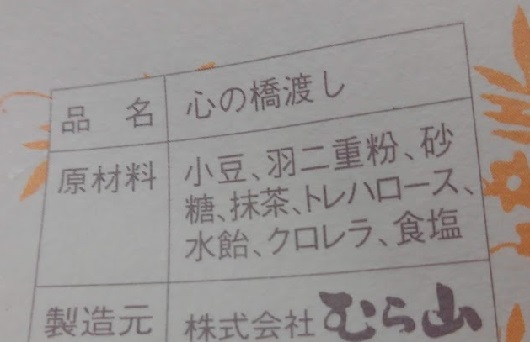 品名 心の橋渡し
原材料 小豆、羽二重粉、砂
糖、抹茶、トレハロース、
水飴、クロレラ、食塩
製造元 株式会社 むら山